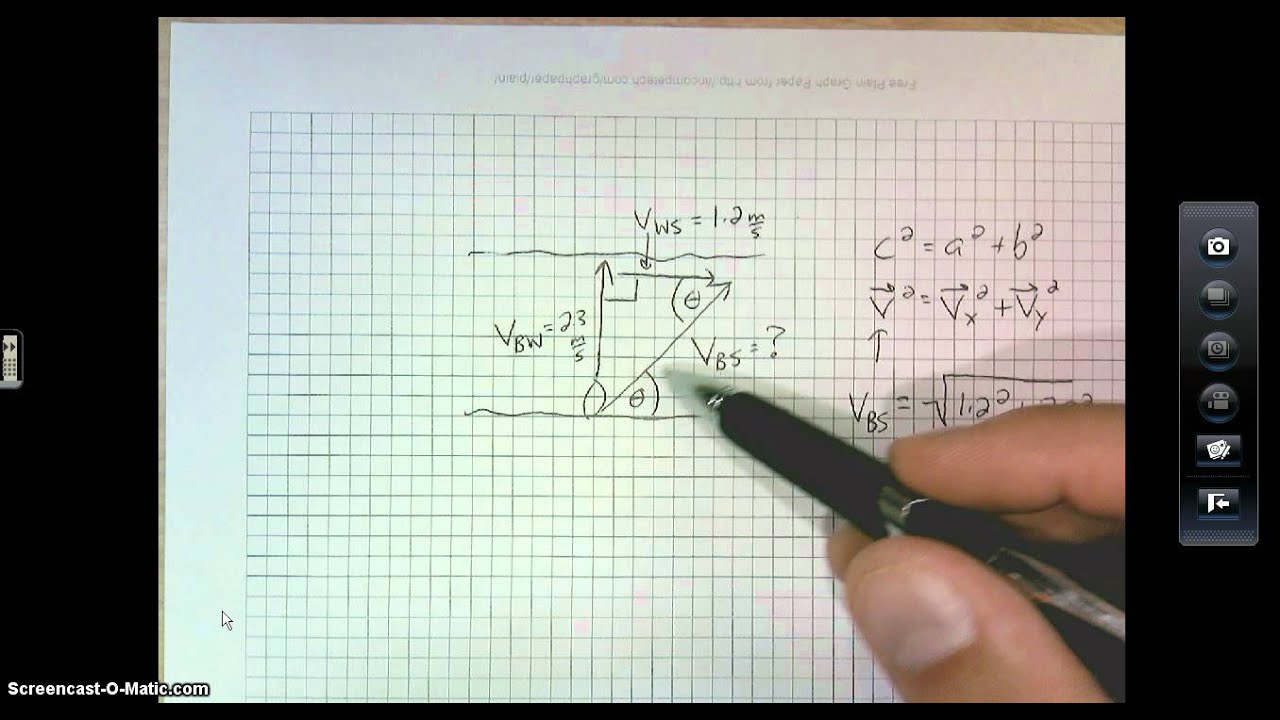 Free Plain Graph Paper from http://incompetech.com/graphpaper/plain/
V_WS = 1.2 m/s
θ
V_BW = 23 m/s
V_BS = ?
θ
c² = a² + b²
V⃗² = V⃗_x² + V⃗_y²
↑
V_BS = √1.2² +
Screencast-O-Matic.com